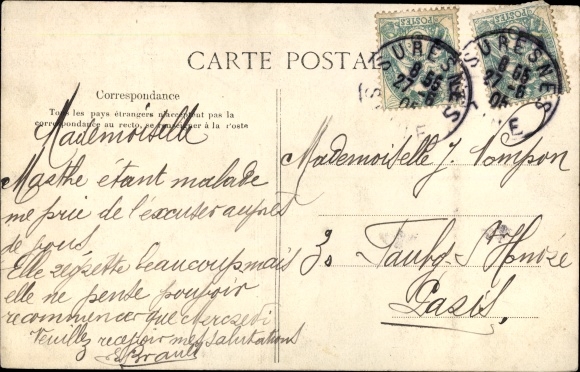 CARTE POSTALE
Correspondance
Tous les pays étrangers n'acceptent pas la
correspondance au recto, se renseigner à la Poste
Mademoiselle
Marthe étant malade
me prie de l'excuser auprès
de vous,
Elle regrette beaucoup mais
elle ne pense pouvoir
recommencer que Mercredi
Veuillez recevoir mes salutations
Brault
SURESNES
8 55
27 -6
05
SURESNES
8 55
27 -6
05
POSTES
Mademoiselle J. Pompon
30 Faubg St Honoré
Paris,